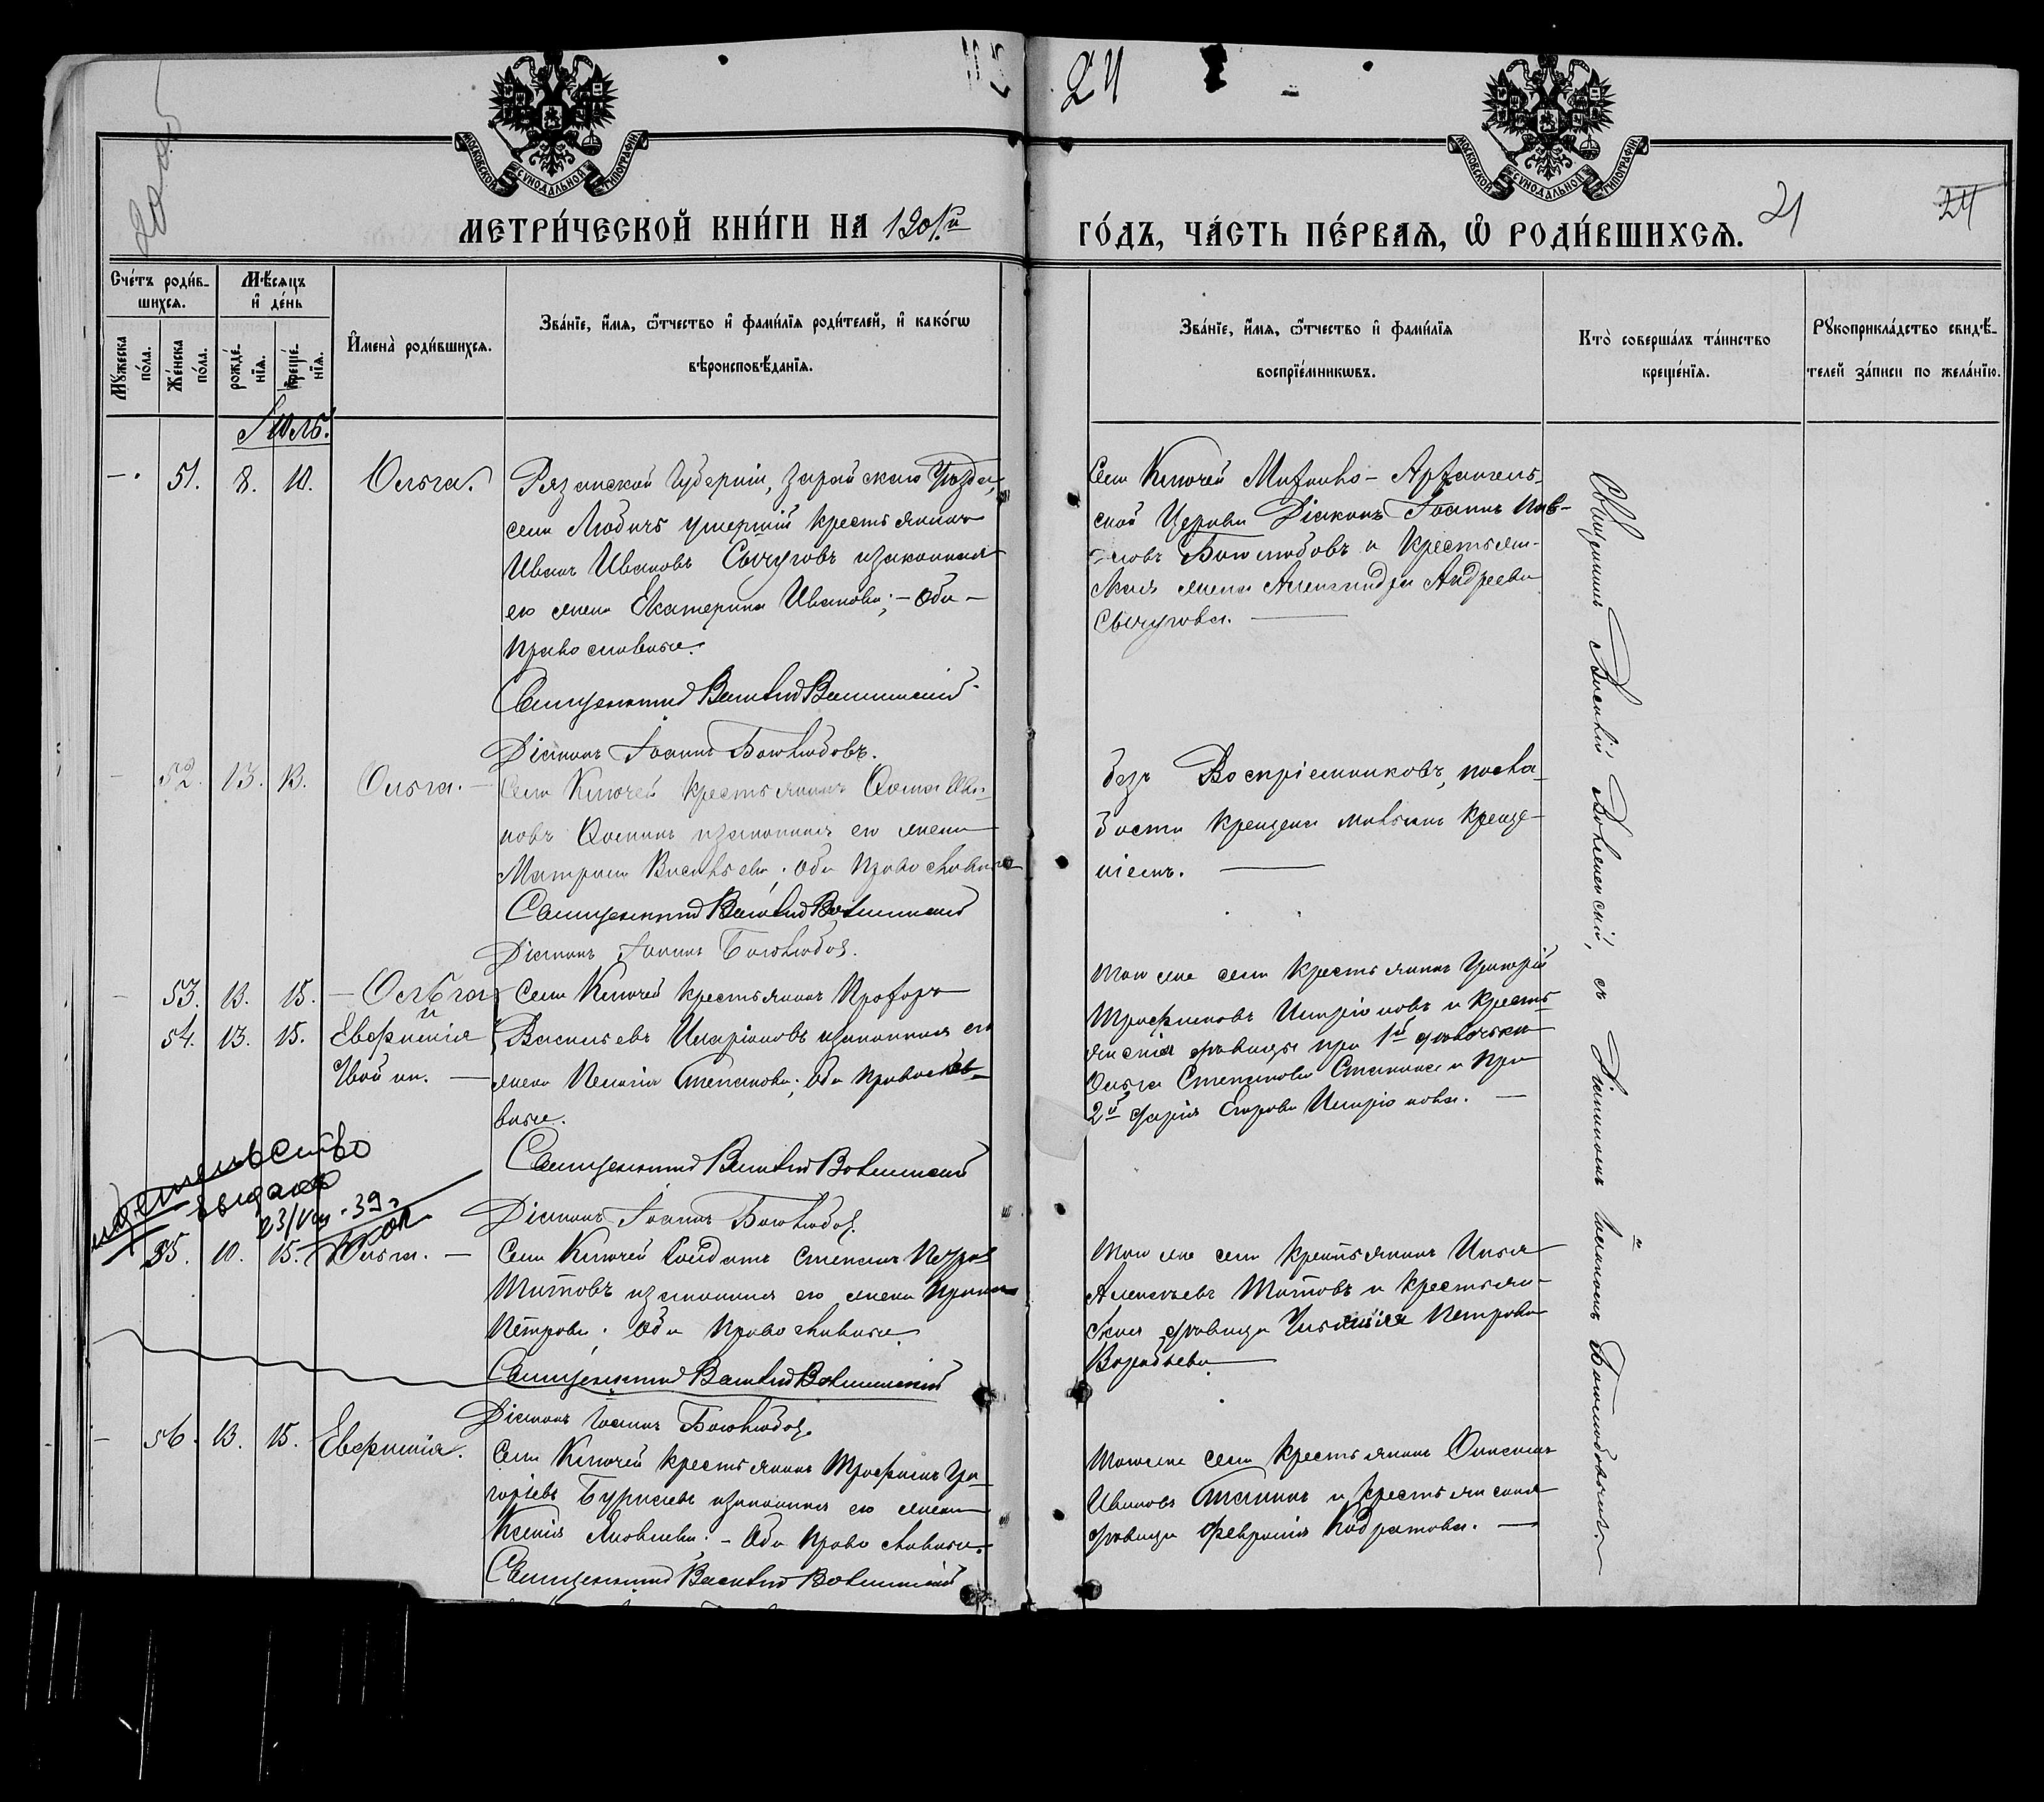 24
МОСКОВСКОЙ СѴНОДАЛЬНОЙ ТИПОГРАФІИ
МОСКОВСКОЙ СѴНОДАЛЬНОЙ ТИПОГРАФІИ
МЕТРИ́ЧЕСКОЙ КНИ́ГИ НА 1901й
ГО́ДЪ, ЧА́СТЬ ПЕ́РВАѦ, Ѡ҆ РОДИ́ВШИХСѦ.
21
24
Сче́тъ роди́в-
шихсѧ.
Мѣ́сѧцъ
и҆ де́нь
Мꙋ́жеска по́ла.
Же́нска по́ла.
рожде́-нїѧ.
креще́-нїѧ.
И҆мена̀ роди́вшихсѧ.
Зва́нїе, и҆́мѧ, ѻ҆́тчество и҆ фами́лїѧ роди́телей, и҆ како́гѡ
вѣроисповѣ́данїѧ.
Зва́нїе, и҆́мѧ, ѻ҆́тчество и҆ фами́лїѧ
воспрїе́мникѡвъ.
Кто̀ соверша́лъ та́инство
креще́нїѧ.
Рꙋкоприкла́дство свидѣ́-
телей за́писи по жела́нїю.
Іюль.
51. 8. 10. Ольга.
Рязанской Губерніи, Зарайскаго Уезда,
села Любичъ умершій крестьянинъ
Иванъ Ивановъ Сычуговъ и законная
его жена Екатерина Иванова; – Оба
православные.
Священникъ Василій Воленский
Діаконъ Іоаннъ Боголюбовъ.
Села Ключей Михаило-Архангель-
ской Церкви Діаконъ Іоаннъ Пав-
ловъ Боголюбовъ и крестьян-
ская жена Александра Андреева
Сычугова.
52. 13. 13. Ольга.
Села Ключей крестьянинъ Фома Ива-
новъ Фоминъ и законная его жена
Матрона Васильева; Оба православные
Священникъ Василій Воленский
Діаконъ Іоаннъ Боголюбов.
безъ Воспріемниковъ, по сла-
бости крещена малымъ креще-
ніемъ.
53. 13. 15. Ольга
и
54. 13. 15. Евфимія
Двойни.
Села Ключей крестьянинъ Прохоръ
Васильевъ Иларіоновъ и законная его
жена Пелагія Степанова; Оба православ-
ные.
Священникъ Василій Воленский
Діаконъ Іоаннъ Боголюбов.
Того же села крестьянинъ Григорій
Трофимовъ Иларіоновъ и кресть-
янскія девицы при 1й девочке
Ольга Степанова и при
2й Дарія Егорова Иларіонова.
свидетельство
выдано
23/VIII-39г
55. 10. 15. Ольга.
Села Ключей Солдатъ Степанъ Петров
Титовъ и законная его жена Ирина
Петрова; Оба православные.
Священникъ Василій Воленский
Діаконъ Іоаннъ Боголюбов.
Того же села крестьянинъ Илья
Алексеевъ Титовъ и крестьян-
ская девица Петрова
Воробьева
56. 13. 15. Евфимія.
Села Ключей крестьянинъ Трофимъ Гри-
горіевъ и законная его жена
Ксенія Яковлева; – Оба православные.
Священникъ Василій Воленский
Того же села крестьянинъ
Ивановъ и крестьянская
девица Февронія Кодратова.
Священникъ Василій съ Діакономъ Іоанномъ Боголюбовымъ.